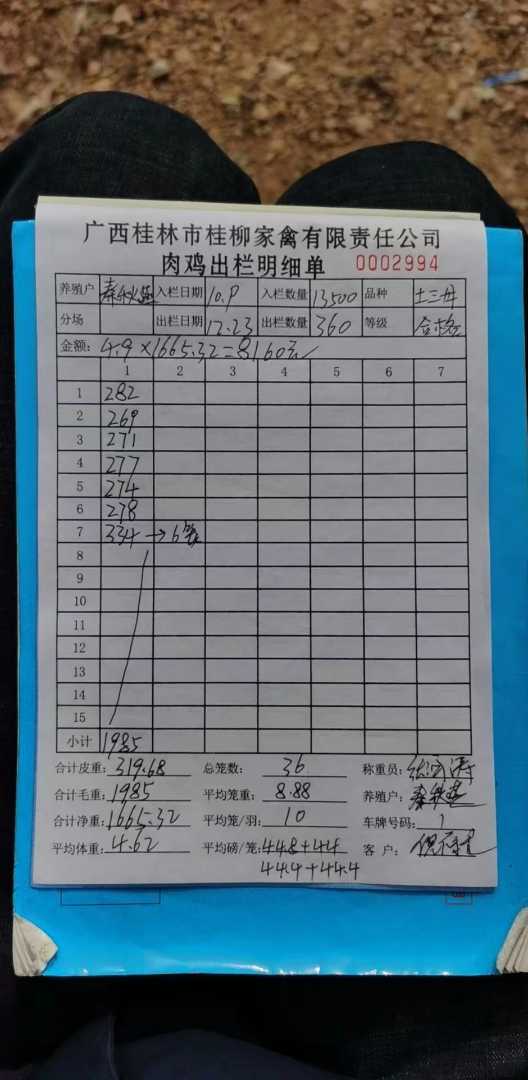 广西桂林市桂柳家禽有限责任公司
肉鸡出栏明细单 0002994
养殖户 入栏日期 10.9 入栏数量 13500 品种 土三母
分场 出栏日期 12.23 出栏数量 360 等级 合格
金额: 4.9×1665.32=8160元
1 2 3 4 5 6 7
1 282
2 269
3 271
4 277
5 274
6 278
7 334→6笼
8
9
10
11
12
13
14
15
小计 1985
合计皮重: 319.68 总笼数: 36 称重员:
合计毛重: 1985 平均笼重: 8.88 养殖户:
合计净重: 1665.32 平均笼/羽: 10 车牌号码: 1
平均体重: 4.62 平均磅/笼: 44.8+44 客 户:
44.4+44.4